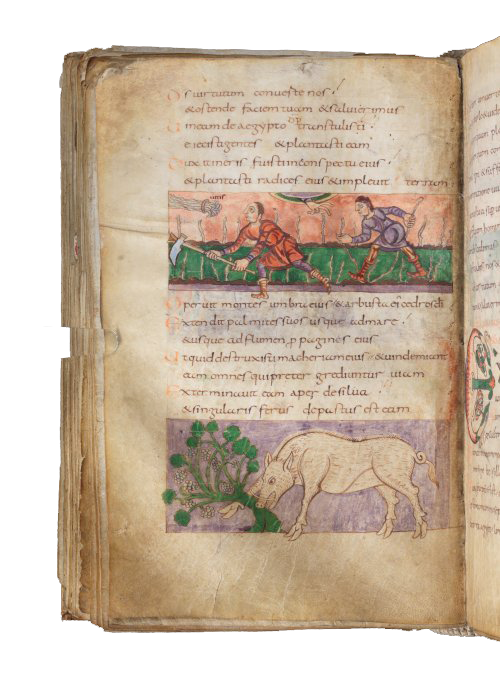 Ds uirtutum conuerte nos ·
& ostende faciem tuam & salui erimus
Uineam de aegypto transtulisti ·
eiecisti gentes & plantasti eam
Dux itineris fuisti in conspectu eius ·
& plantasti radices eius & impleuit terram
Operuit montes umbra eius · & arbusta ei cedros di
Extendit palmites suos usque ad mare ·
& usque ad flumen propagines eius
Ut quid destruxisti macheriam eius & uindemiant
eam omnes qui preter grediuntur uiam
Exterminauit eam aper de silua
& singularis ferus depastus est eam